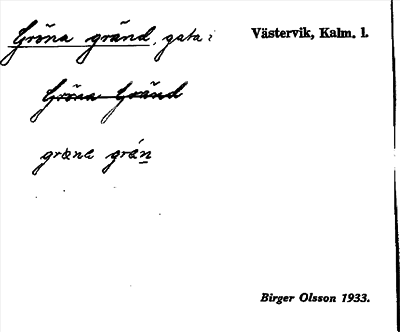 Gröna gränd, gata i Västervik, Kalm. l.
Gröna Gränd
grøna grán
Birger Olsson 1933.